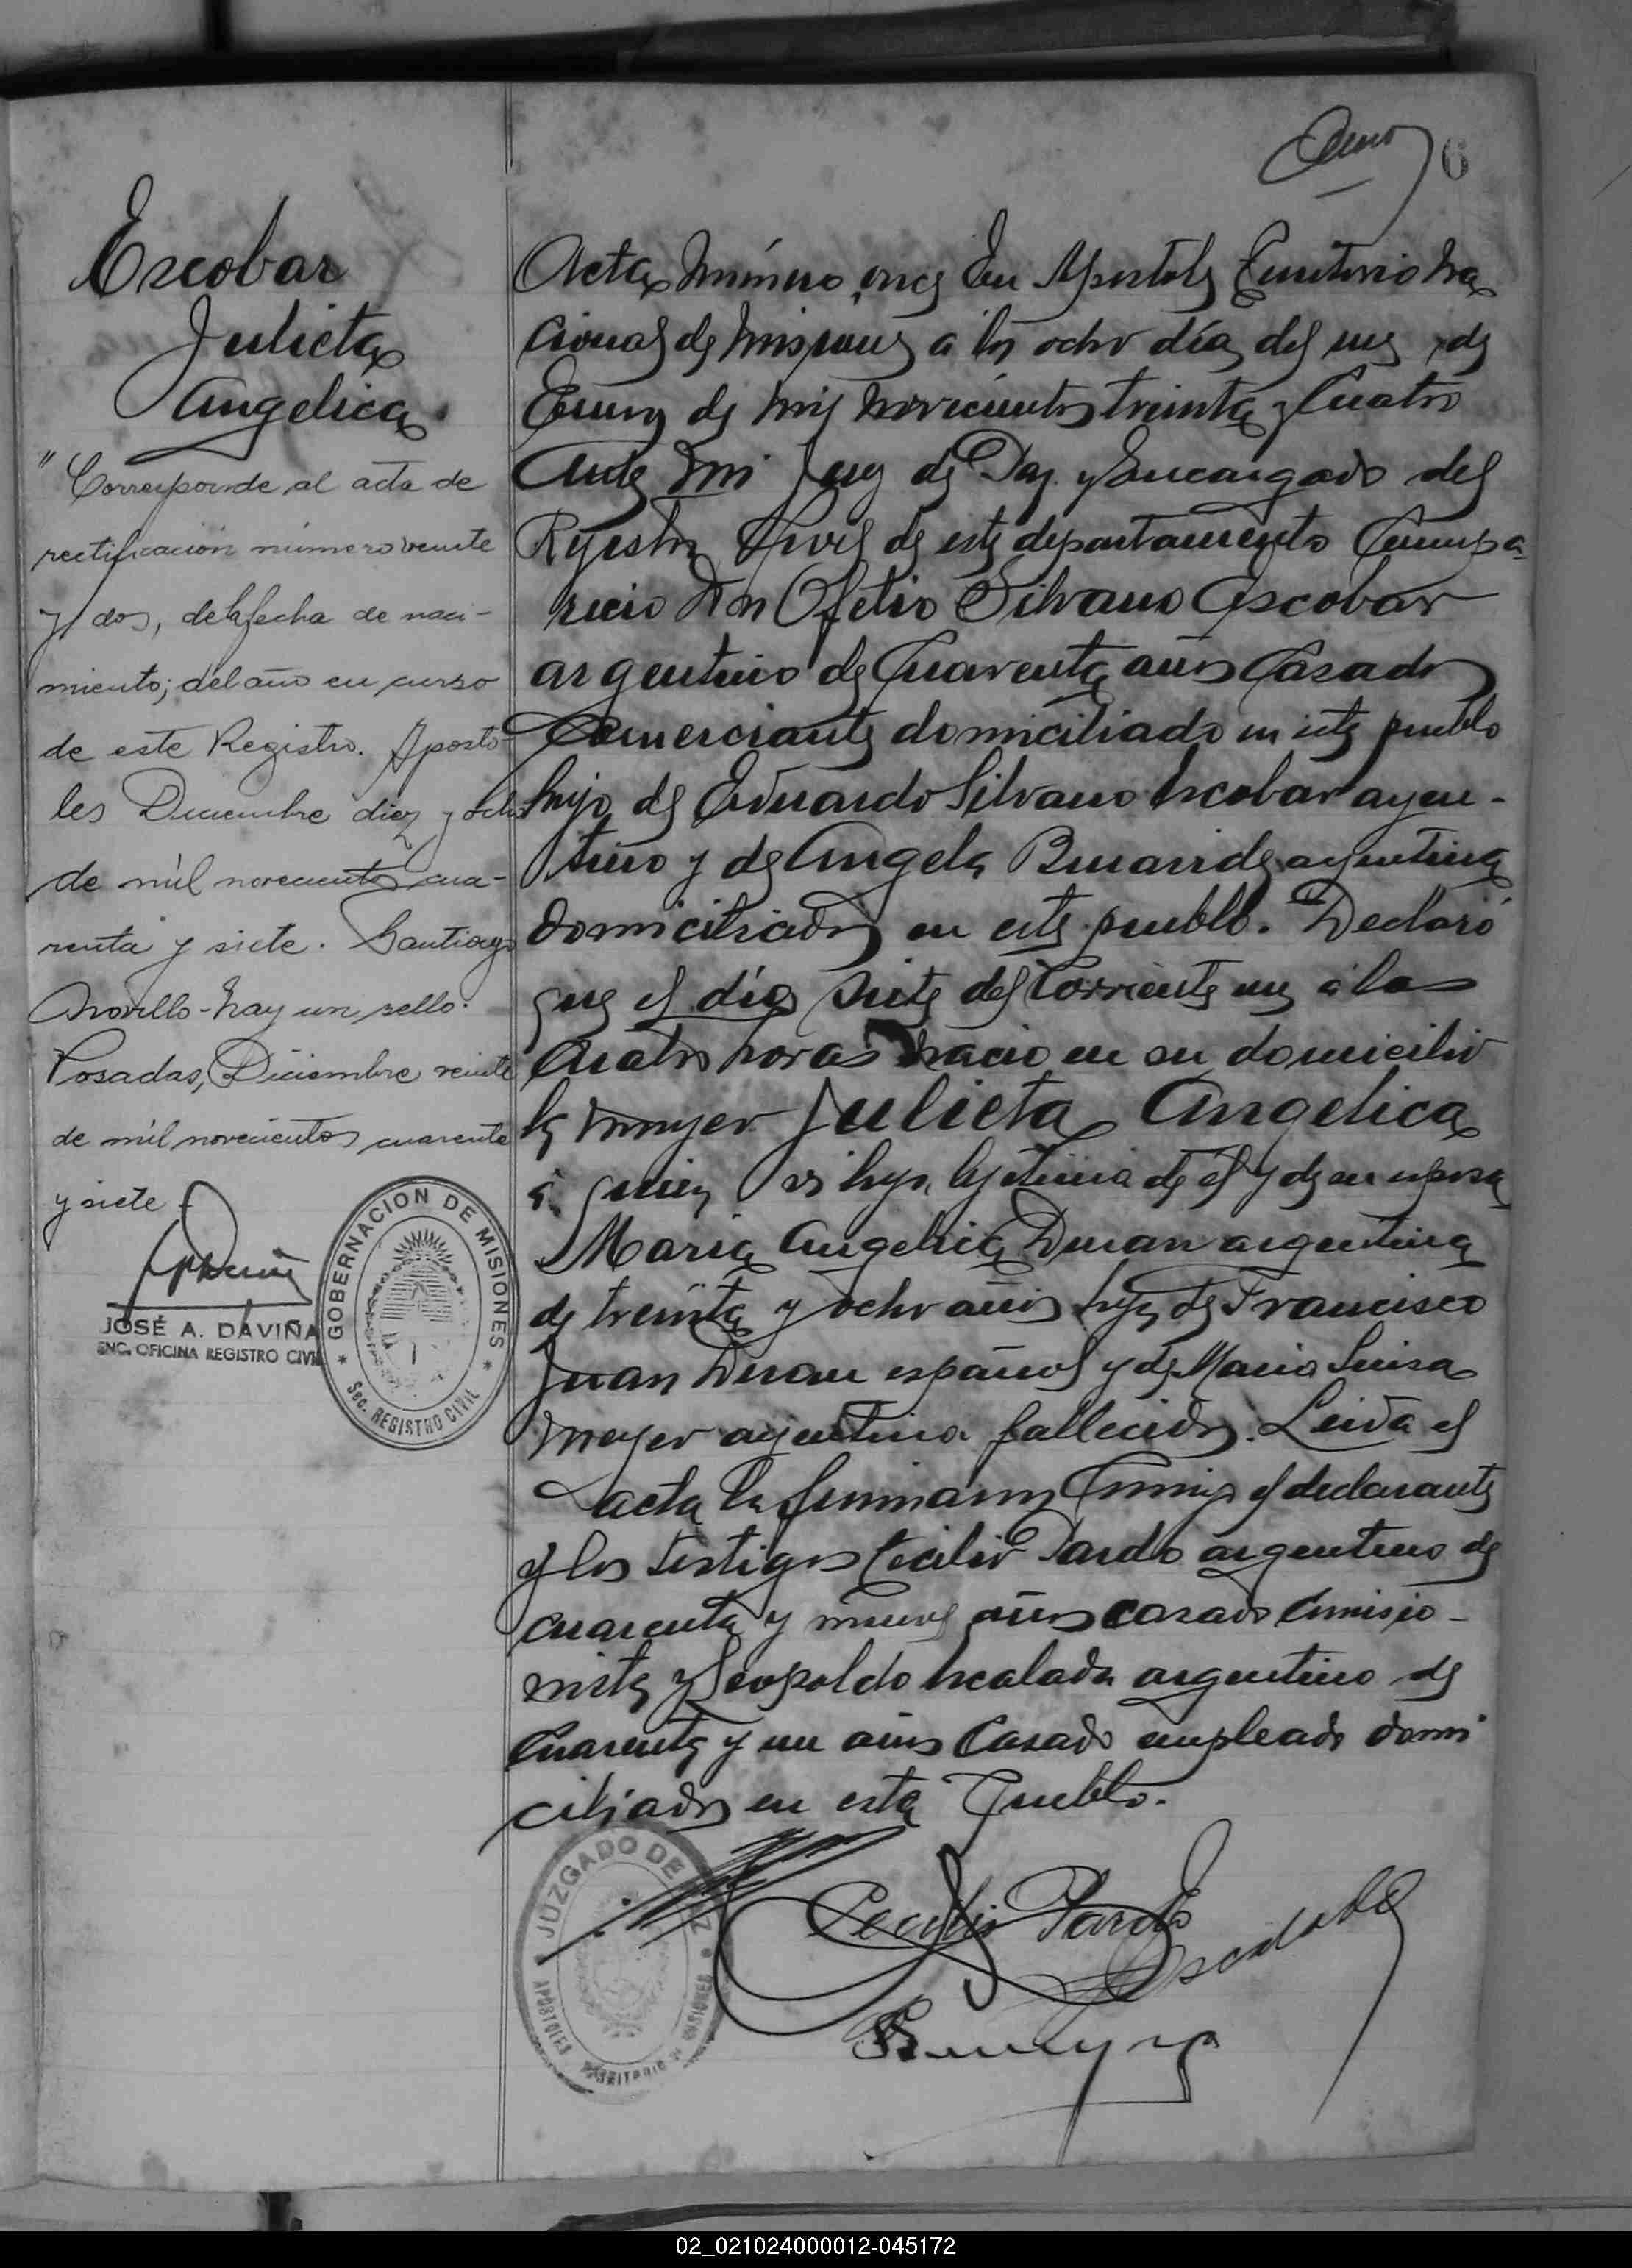 6
Escobar
Julieta
Angelica
"Corresponde al acta de
rectificación número veinte
y dos, de la fecha de naci-
miento; del año en curso
de este Registro. Aposto-
les Diciembre diez y ocho
de mil novecientos cua-
renta y siete. Santiago
Morillo - hay un sello.
Posadas, Diciembre veinte
de mil novecientos cuarenta
y siete.
JOSÉ A. DAVIÑA
ENC. OFICINA REGISTRO CIVIL
GOBERNACION DE MISIONES
Sec. REGISTRO CIVIL
Acta número once En Apostoles Territorio Na
cional de Misiones a los ocho día del mes de
Enero de mil novecientos treinta y Cuatro
Ante mi Juez de Paz y Encargado del
Registro Civil de este departamento Compa
recio Don Ofelio Silvano Escobar
argentino de Cuarenta años Casado
Comerciante domiciliado en este pueblo
hijo de Eduardo Silvano Escobar argen-
tino y de Angela argentina
domiciliados en este pueblo. Declaró
que el día siete del Corriente mes a las
Cuatro horas nacio en su domicilio
la mujer Julieta Angelica
a quien es hija lejitima de el y de su esposa
Maria Angelica Duran argentina
de treinta y ocho años hija de Francisco
Juan Duran español y de Maria Luisa
Meyer argentina fallecidos. Leida el
acta la firmaron Conmigo el declarante
y los testigos Cecilio Pardo argentino de
cuarenta y nueve años casado Comisio-
nista y Leopoldo Escalada argentino de
Cuarenta y un años Casado empleado domi
ciliados en esta Pueblo.
JUZGADO DE PAZ
APOSTOLES TERRITORIO DE MISIONES
Cecilio Pardo
Escalada
02_021024000012-045172